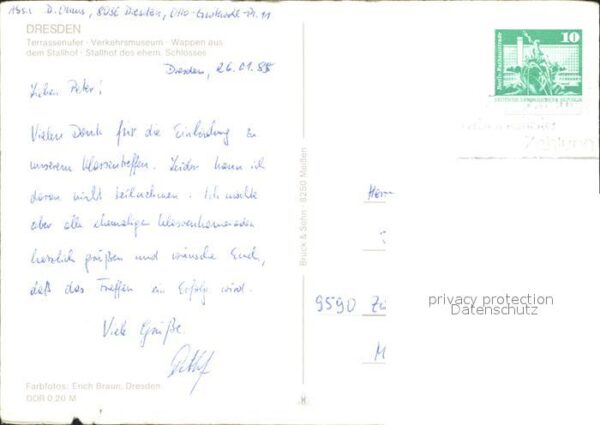 8036 Dresden, Otto-Grotewohl-Pl. 11
DRESDEN
Terrassenufer - Verkehrsmuseum - Wappen aus
dem Stallhof - Stallhof des ehem. Schlosses
Dresden, 26.01.88
Lieber Peter!
Vielen Dank für die Einladung zu
unserem Klassentreffen. Leider kann ich
daran nicht teilnehmen. Ich möchte
aber alle ehemaligen Klassenkameraden
herzlich grüßen und wünsche Euch,
daß das Treffen ein Erfolg wird.
Viele Grüße
Detlef
Farbfotos: Erich Braun, Dresden
DDR 0,20 M
Bruck & Sohn · 8250 Meißen
10
DEUTSCHE DEMOKRATISCHE REPUBLIK
Herrn
9590
privacy protection
Datenschutz